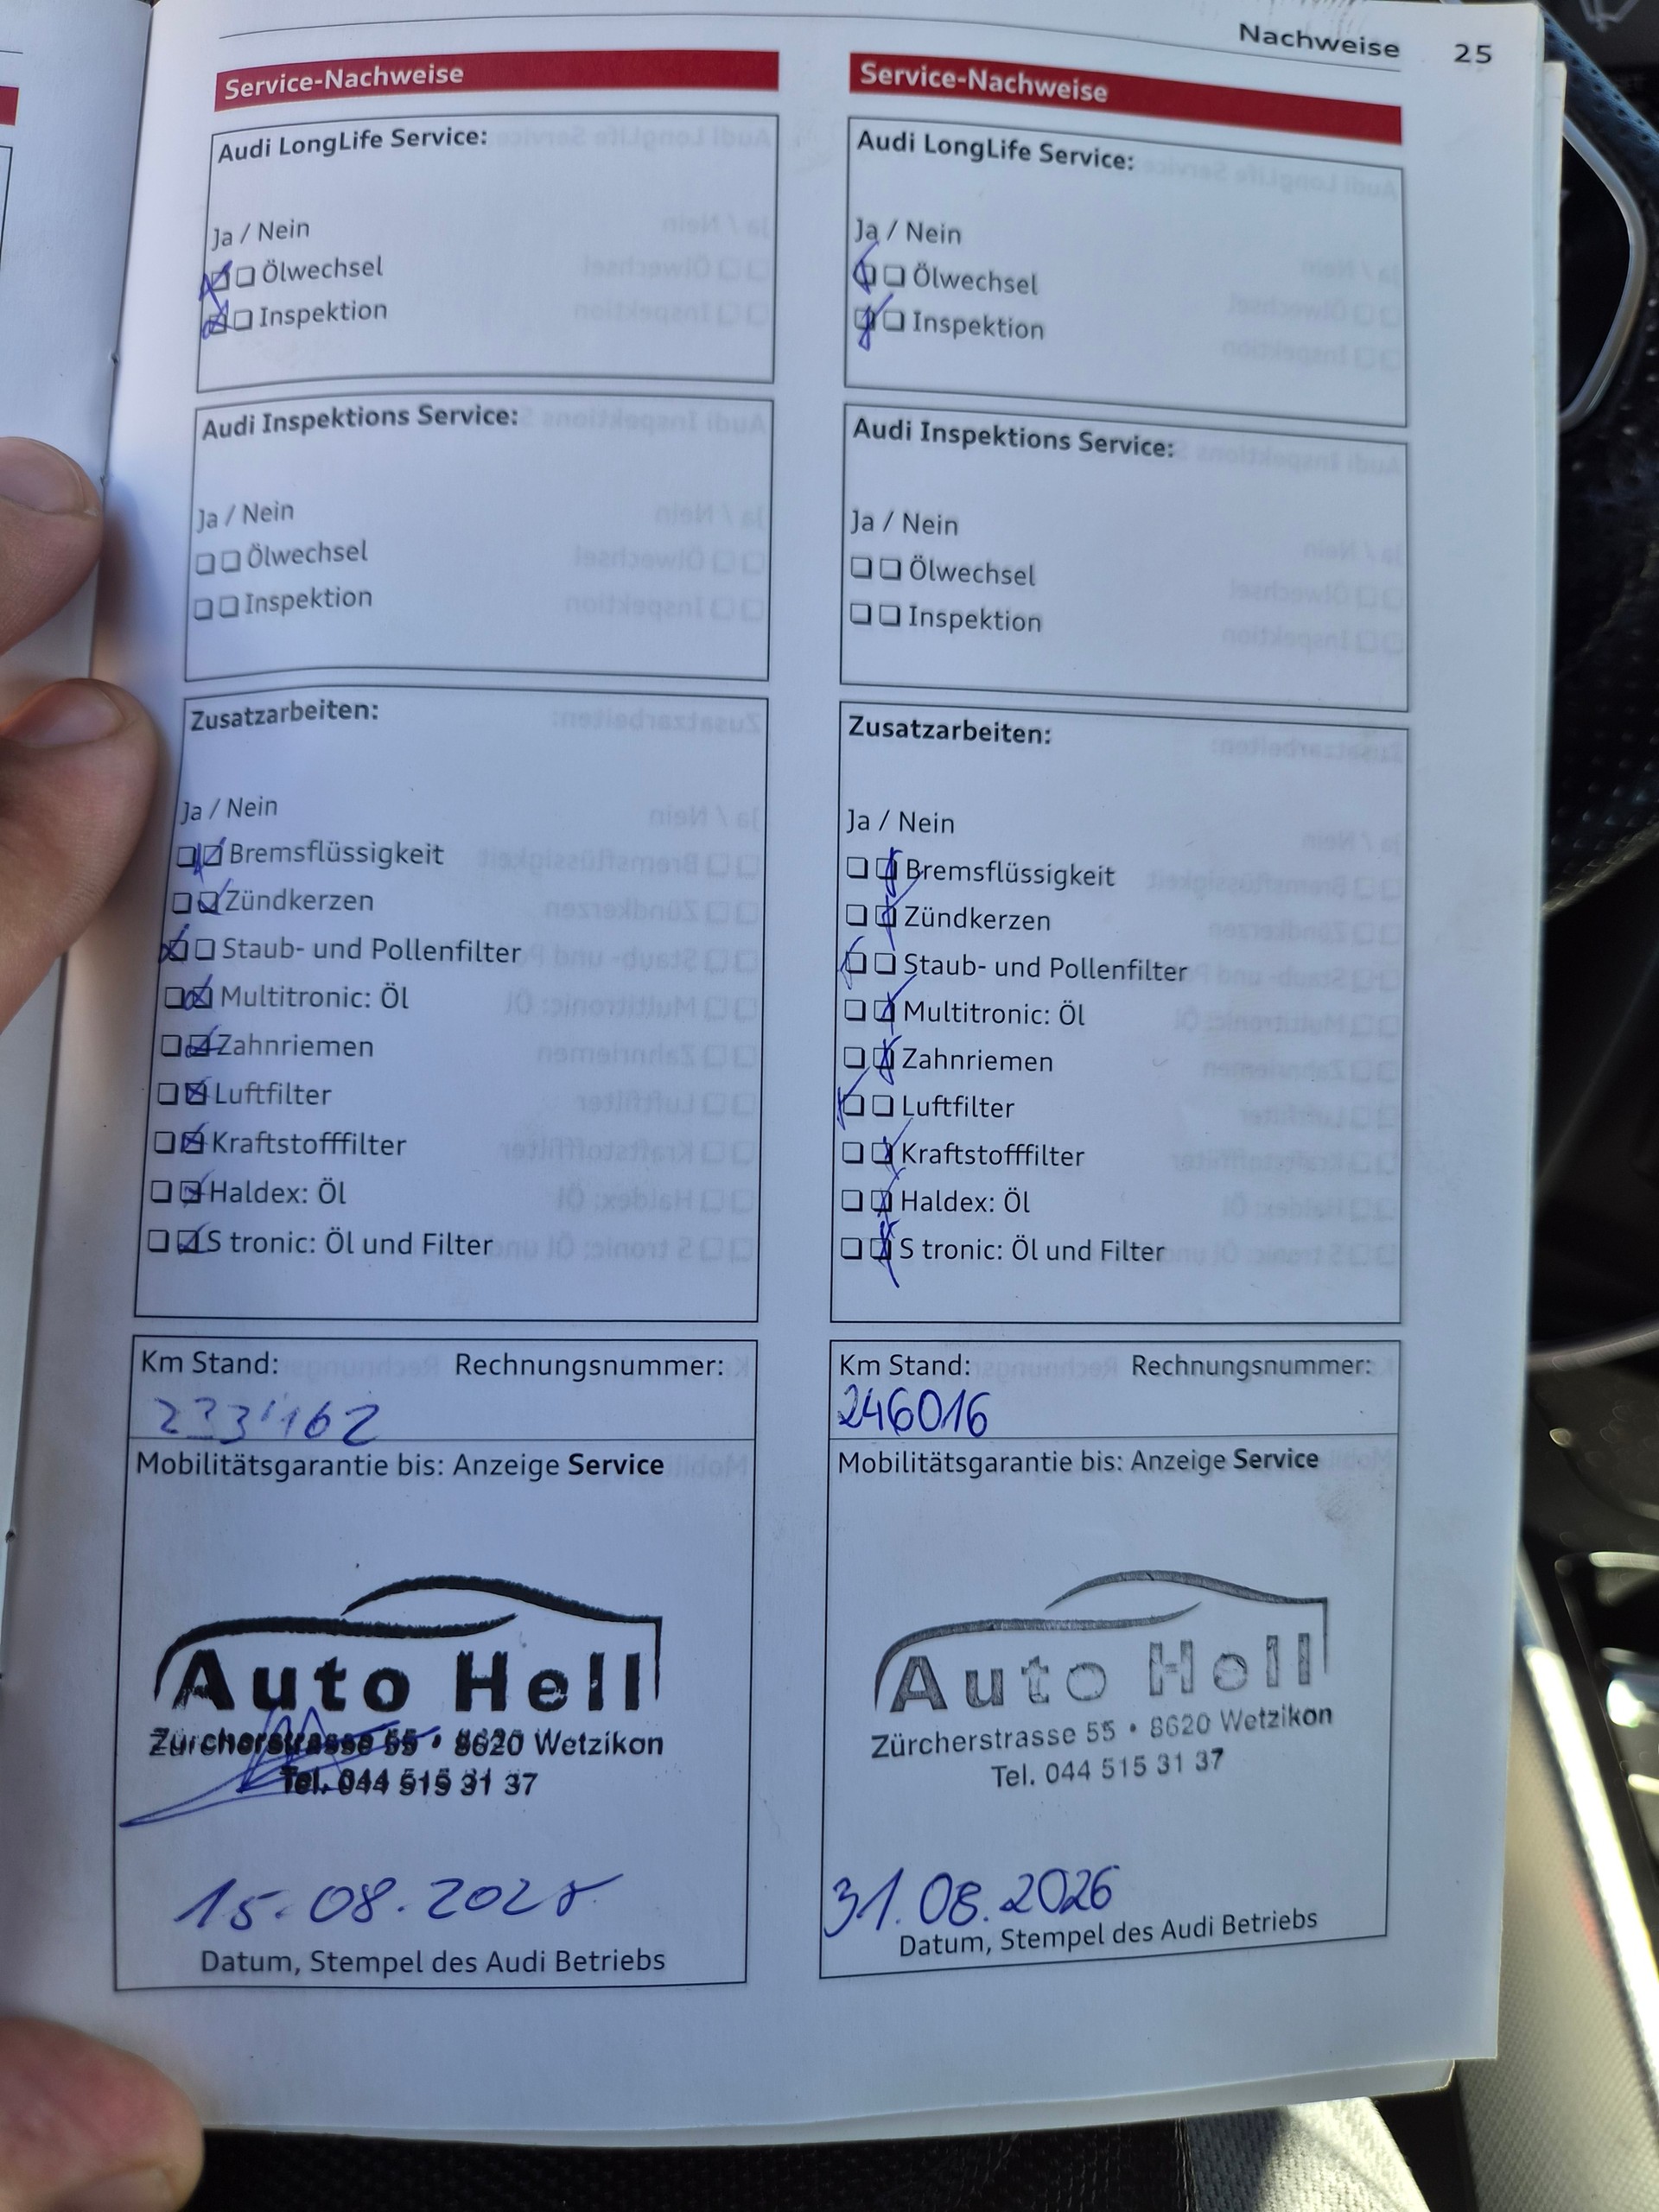 Nachweise 25
Service-Nachweise
Audi LongLife Service:
Ja / Nein
Ölwechsel
Inspektion
Audi Inspektions Service:
Ja / Nein
Ölwechsel
Inspektion
Zusatzarbeiten:
Ja / Nein
Bremsflüssigkeit
Zündkerzen
Staub- und Pollenfilter
Multitronic: Öl
Zahnriemen
Luftfilter
Kraftstofffilter
Haldex: Öl
S tronic: Öl und Filter
Km Stand: Rechnungsnummer:
233'162
Mobilitätsgarantie bis: Anzeige Service
Auto Hell
Zürcherstrasse 55 • 8620 Wetzikon
Tel. 044 515 31 37
15.08.2025
Datum, Stempel des Audi Betriebs
Service-Nachweise
Audi LongLife Service:
Ja / Nein
Ölwechsel
Inspektion
Audi Inspektions Service:
Ja / Nein
Ölwechsel
Inspektion
Zusatzarbeiten:
Ja / Nein
Bremsflüssigkeit
Zündkerzen
Staub- und Pollenfilter
Multitronic: Öl
Zahnriemen
Luftfilter
Kraftstofffilter
Haldex: Öl
S tronic: Öl und Filter
Km Stand: Rechnungsnummer:
246016
Mobilitätsgarantie bis: Anzeige Service
Auto Hell
Zürcherstrasse 55 • 8620 Wetzikon
Tel. 044 515 31 37
31.08.2026
Datum, Stempel des Audi Betriebs